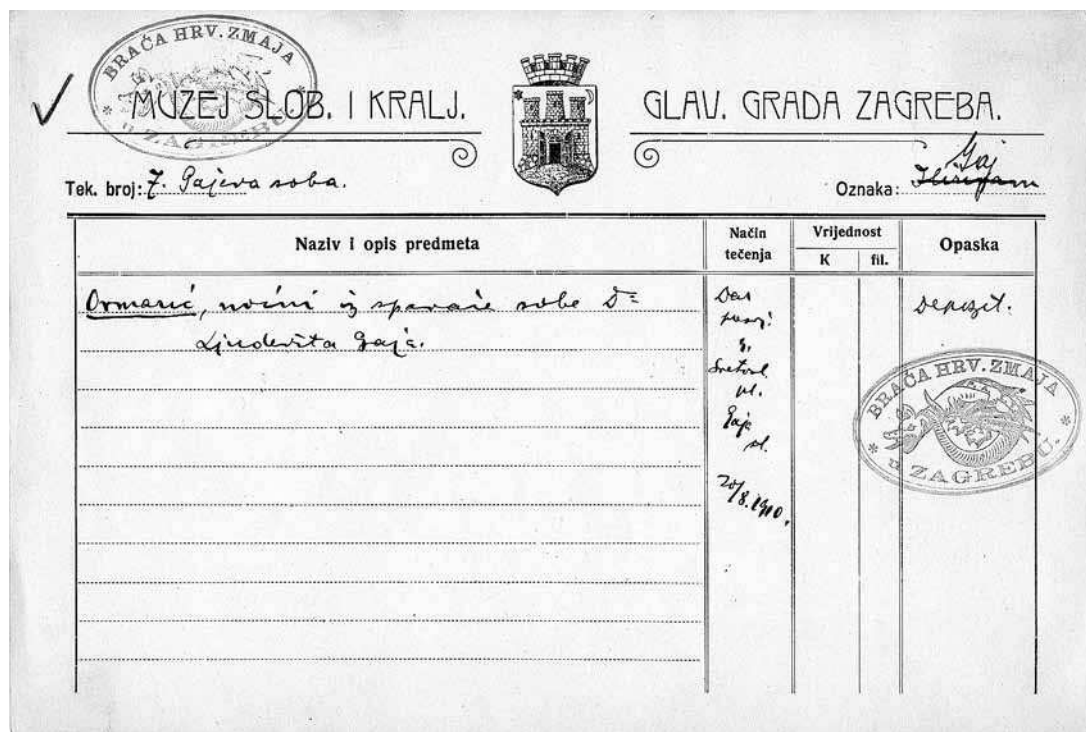 BRAĆA HRV. ZMAJA
* u ZAGREBU. *
MUZEJ SLOB. I KRALJ. GLAV. GRADA ZAGREBA.
Tek. broj: 7. Gajeva soba.
Gaj
Oznaka:
Naziv i opis predmeta
Način tečenja
Vrijednost
K fil.
Opaska
Ormarić, noćni iz spavaće sobe Dr
Ljudevita Gaja.
Dar
g.
pl.
Gaj
20/8.1910.
Depozit.
BRAĆA HRV. ZMAJA
* u ZAGREBU. *